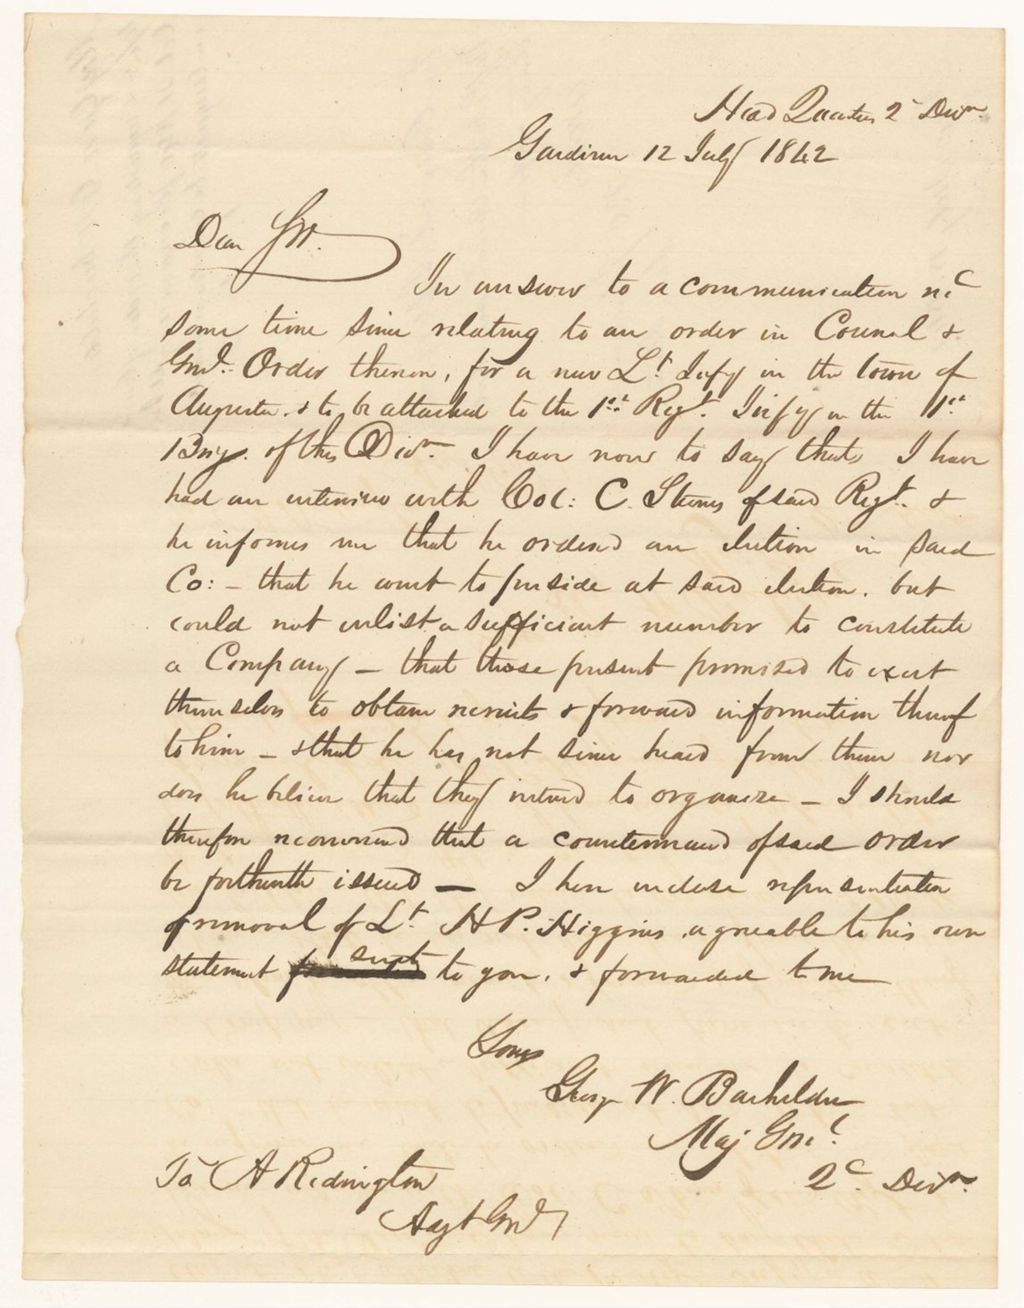 Head Quarters 2d Divn.
Gardiner 12 July 1842
Dear Sir.
In answer to a communication recd
some time since relating to an order in Council &
Genl. Order thereon, for a new Lt. Infy in the town of
Augusta. & to be attached to the 1st Regt. Infy in the 1st
Brig. of this Divn. I have now to say that I have
had an interview with Col: C. Stevens of said Regt. &
he informs me that he ordered an election in said
Co: - that he went to preside at said election. but
could not enlist a sufficient number to constitute
a Company - that those present promised to exert
themselves to obtain recruits & forward information thereof
to him - & that he has not since heard from them nor
does he believe that they intend to organize - I should
therefore recommend that a countermand of said order
be forthwith issued - I here inclose representation
of removal of Lt. H P. Higgins agreeable to his own
statement sent to you. & forwarded to me
Yours
George W. Bachelder
Maj Genl.
2d. Divn.
To A Redington
Adjt Genl